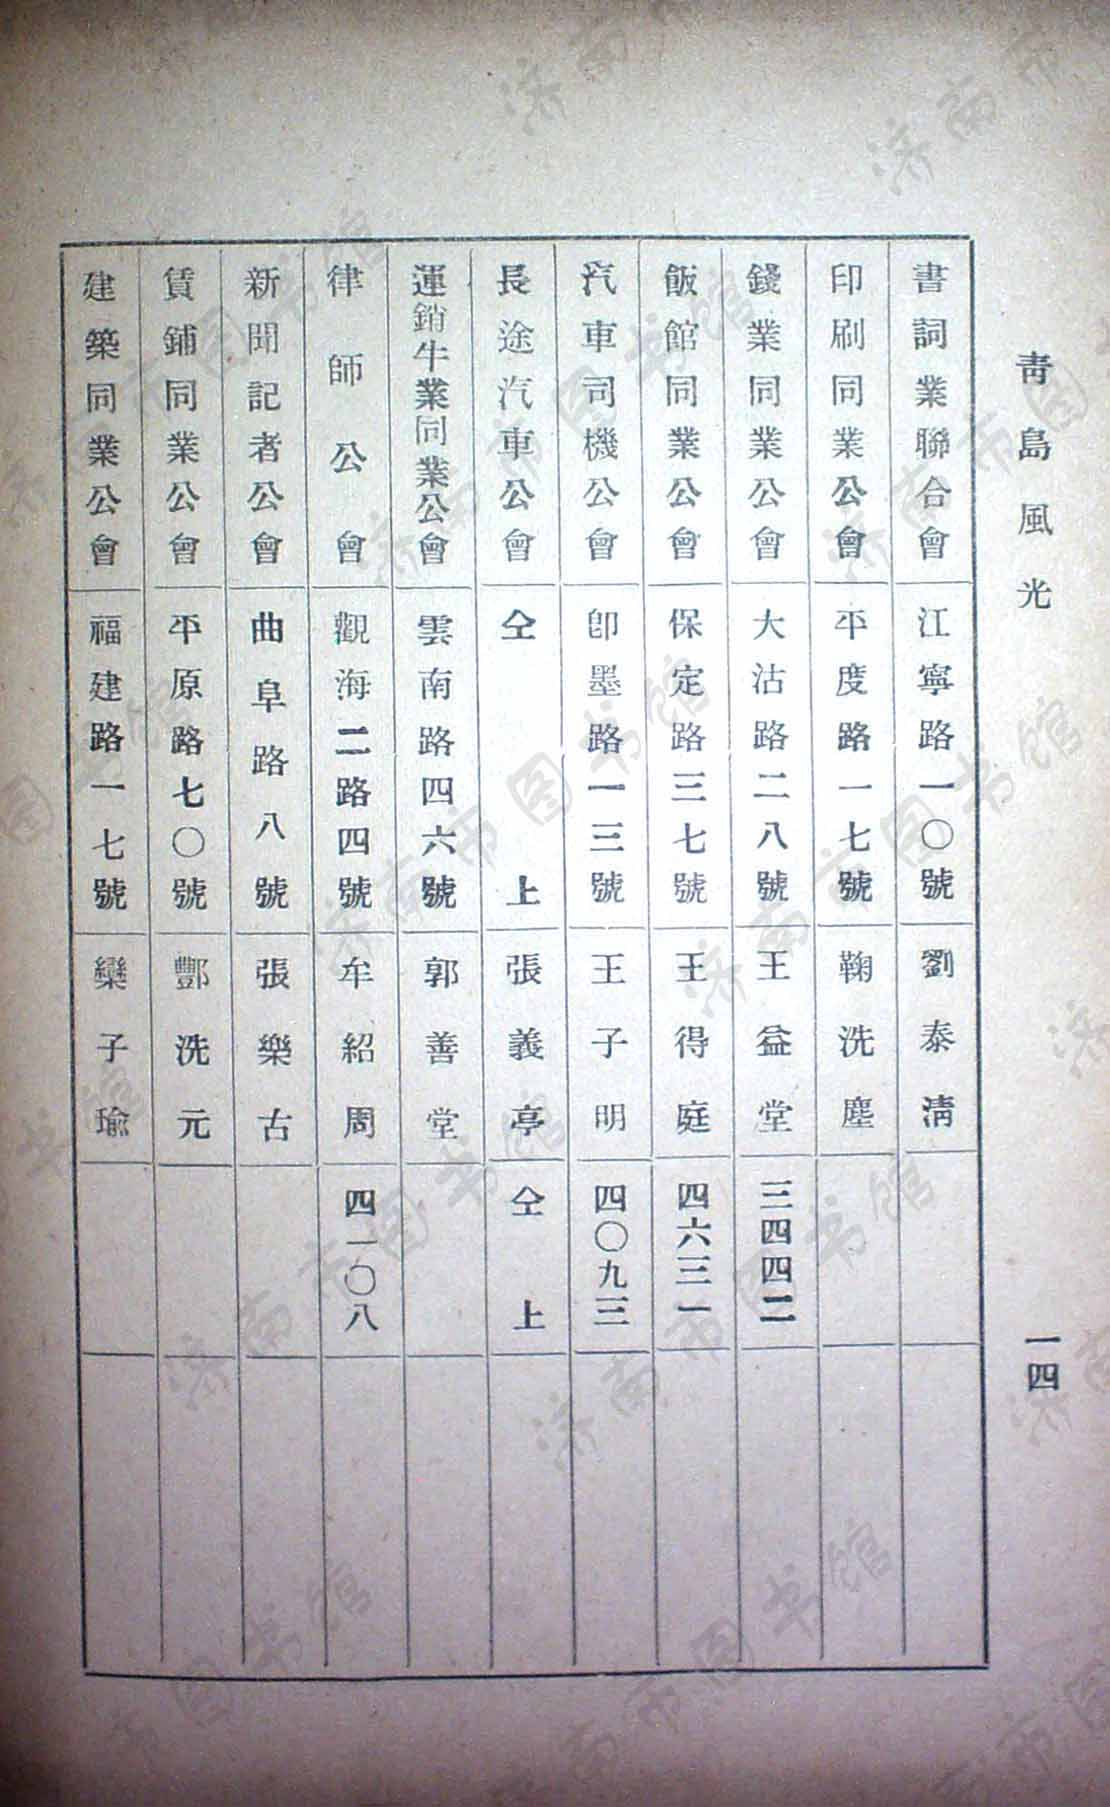 青島風光
一四
書詞業聯合會 江寧路一〇號 劉泰淸
印刷同業公會 平度路一七號 鞠洗塵
錢業同業公會 大沽路二八號 王益堂 三四四二
飯館同業公會 保定路三七號 王得庭 四六三一
汽車司機公會 卽墨路一三號 王子明 四〇九三
長途汽車公會 仝上 張義亭 仝上
運銷牛業同業公會 雲南路四六號 郭善堂
律師公會 觀海二路四號 牟紹周 四一〇八
新聞記者公會 曲阜路八號 張樂古
賃鋪同業公會 平原路七〇號 酆洗元
建築同業公會 福建路一七號 欒子瑜
济南市图书馆